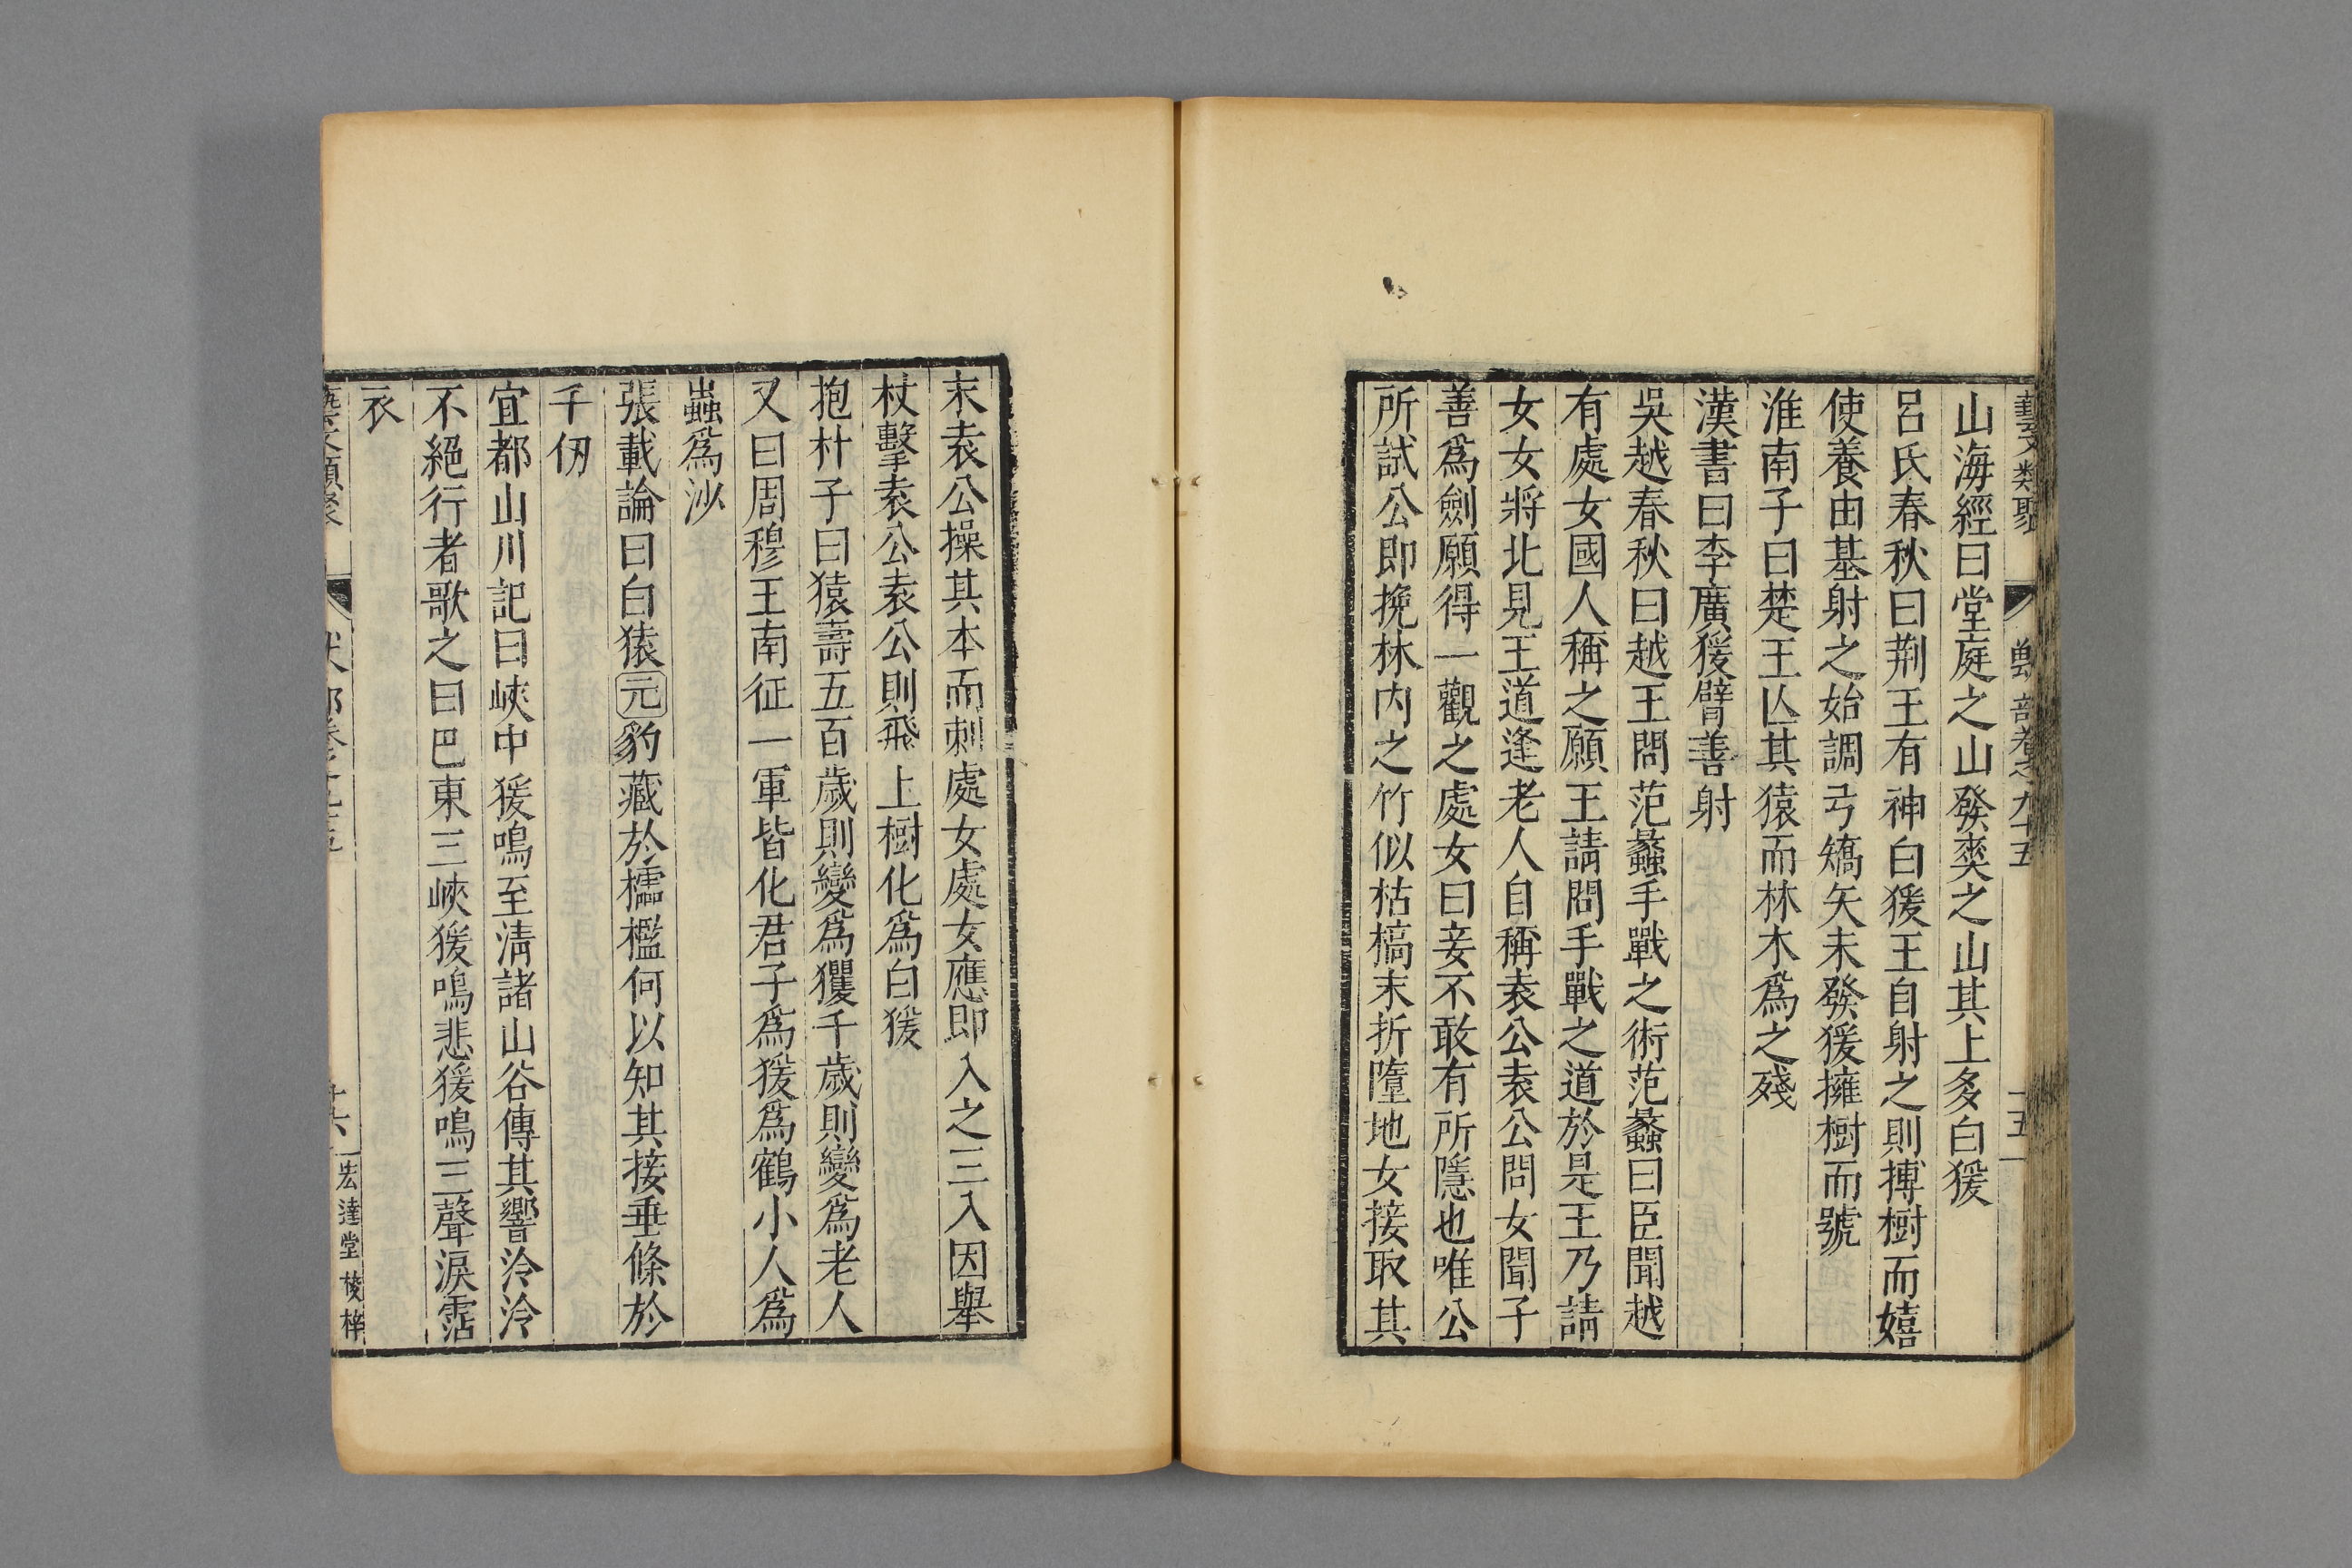 藝文類聚 獸部卷之九十五 十五
山海經曰堂庭之山發爽之山其上多白猨
呂氏春秋曰荆王有神白猨王自射之則搏樹而嬉
使養由基射之始調弓矯矢未發猨擁樹而號
淮南子曰楚王亾其猿而林木爲之殘
漢書曰李廣猨臂善射
吳越春秋曰越王問范蠡手戰之術范蠡曰臣聞越
有處女國人稱之願王請問手戰之道於是王乃請
女女將北見王道逢老人自稱袁公袁公問女聞子
善爲劍願得一觀之處女曰妾不敢有所隱也唯公
所試公即挽林内之竹似枯槁末折墮地女接取其
末袁公操其本而刺處女處女應即入之三入因舉
杖擊袁公袁公則飛上樹化爲白猨
抱朴子曰猿壽五百歲則變爲玃千歲則變爲老人
又曰周穆王南征一軍皆化君子爲猨爲鶴小人爲
蟲爲沙
張載論曰白猿元豹藏於櫺檻何以知其接垂條於
千仞
宜都山川記曰峽中猨鳴至淸諸山谷傳其響泠泠
不絕行者歌之曰巴東三峽猨鳴悲猨鳴三聲淚霑
衣
藝文類聚 獸部卷之九十五 十六 宏達堂校梓